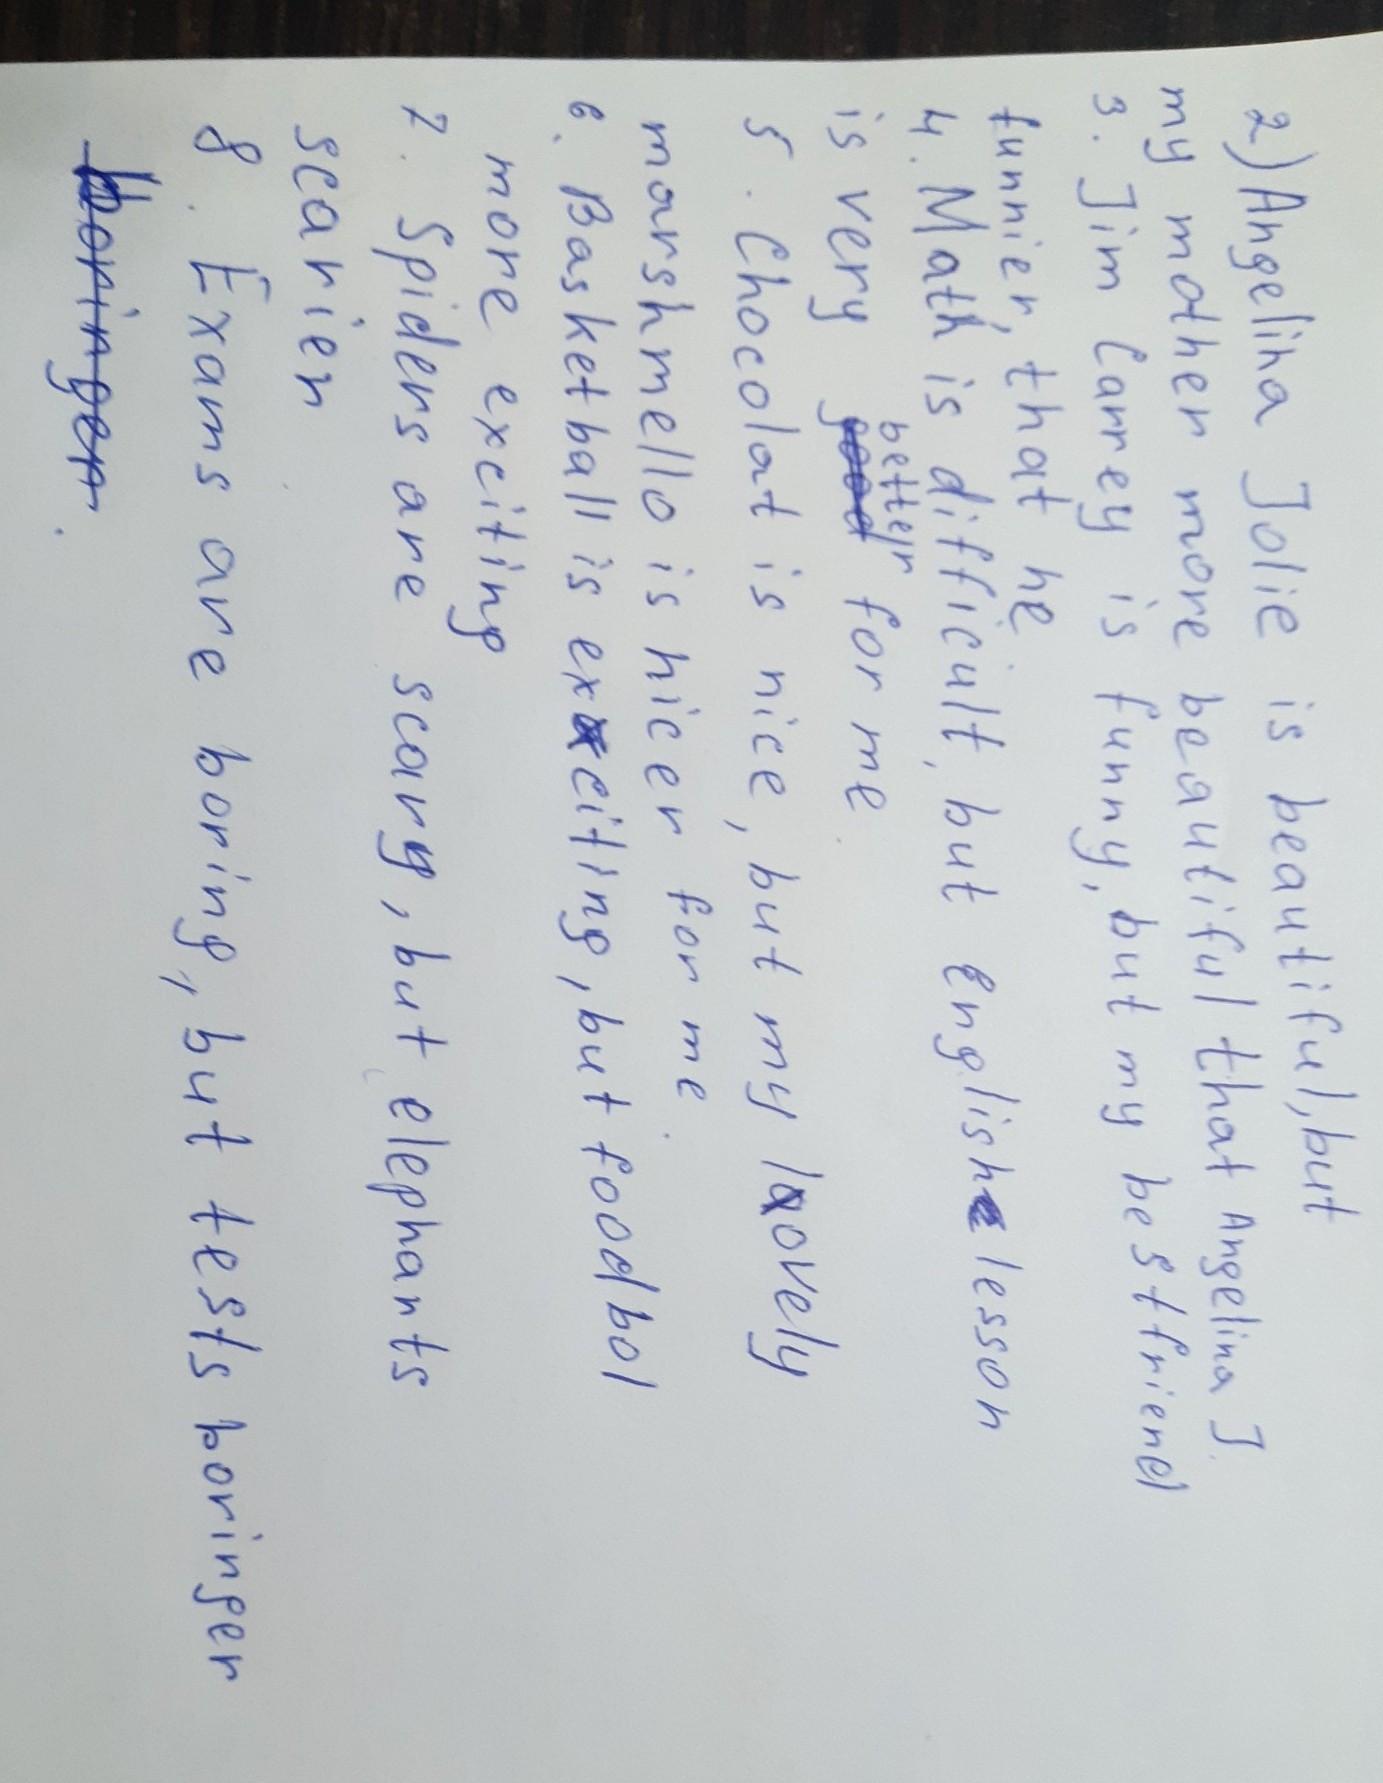 2) Angelina Jolie is beautiful, but
my mother more beautiful that Angelina J.
3. Jim Carrey is funny, but my best friend
funnier, that he
4. Math is difficult, but english lesson
is very better for me
5. Chocolat is nice, but my lovely
marshmello is nicer for me.
6. Basketball is exciting, but foodbol
more exciting
7. Spiders are scary, but elephants
scarier
8. Exams are boring, but tests boringer
boringer.